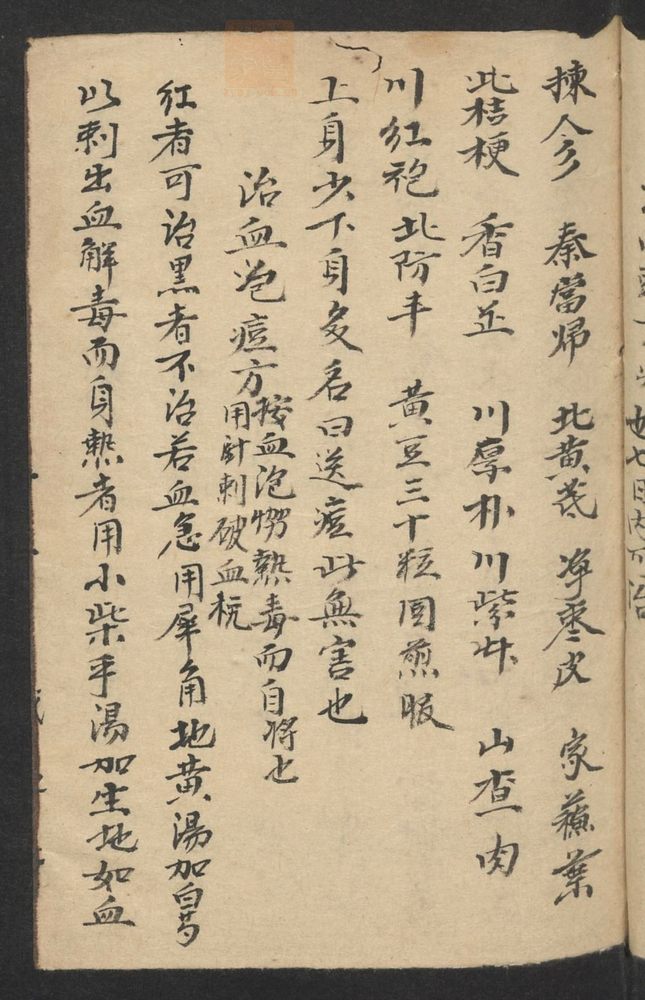 揀令 秦當归 北黃芪 净棗皮 家蘓葉
北桔梗 香白芷 川厚朴 川紫草 山查肉
川红袍 北防丰 黃豆三十粒 同煎服
上身少下身多名曰送痘此無害也
治血泡痘方 按血泡慒熱毒而自將也
用針刺破血
红者可治黑者不治若血急用犀角地黃湯加白芍
以刺出血解毒而身熱者用小柴平湯加生地如血